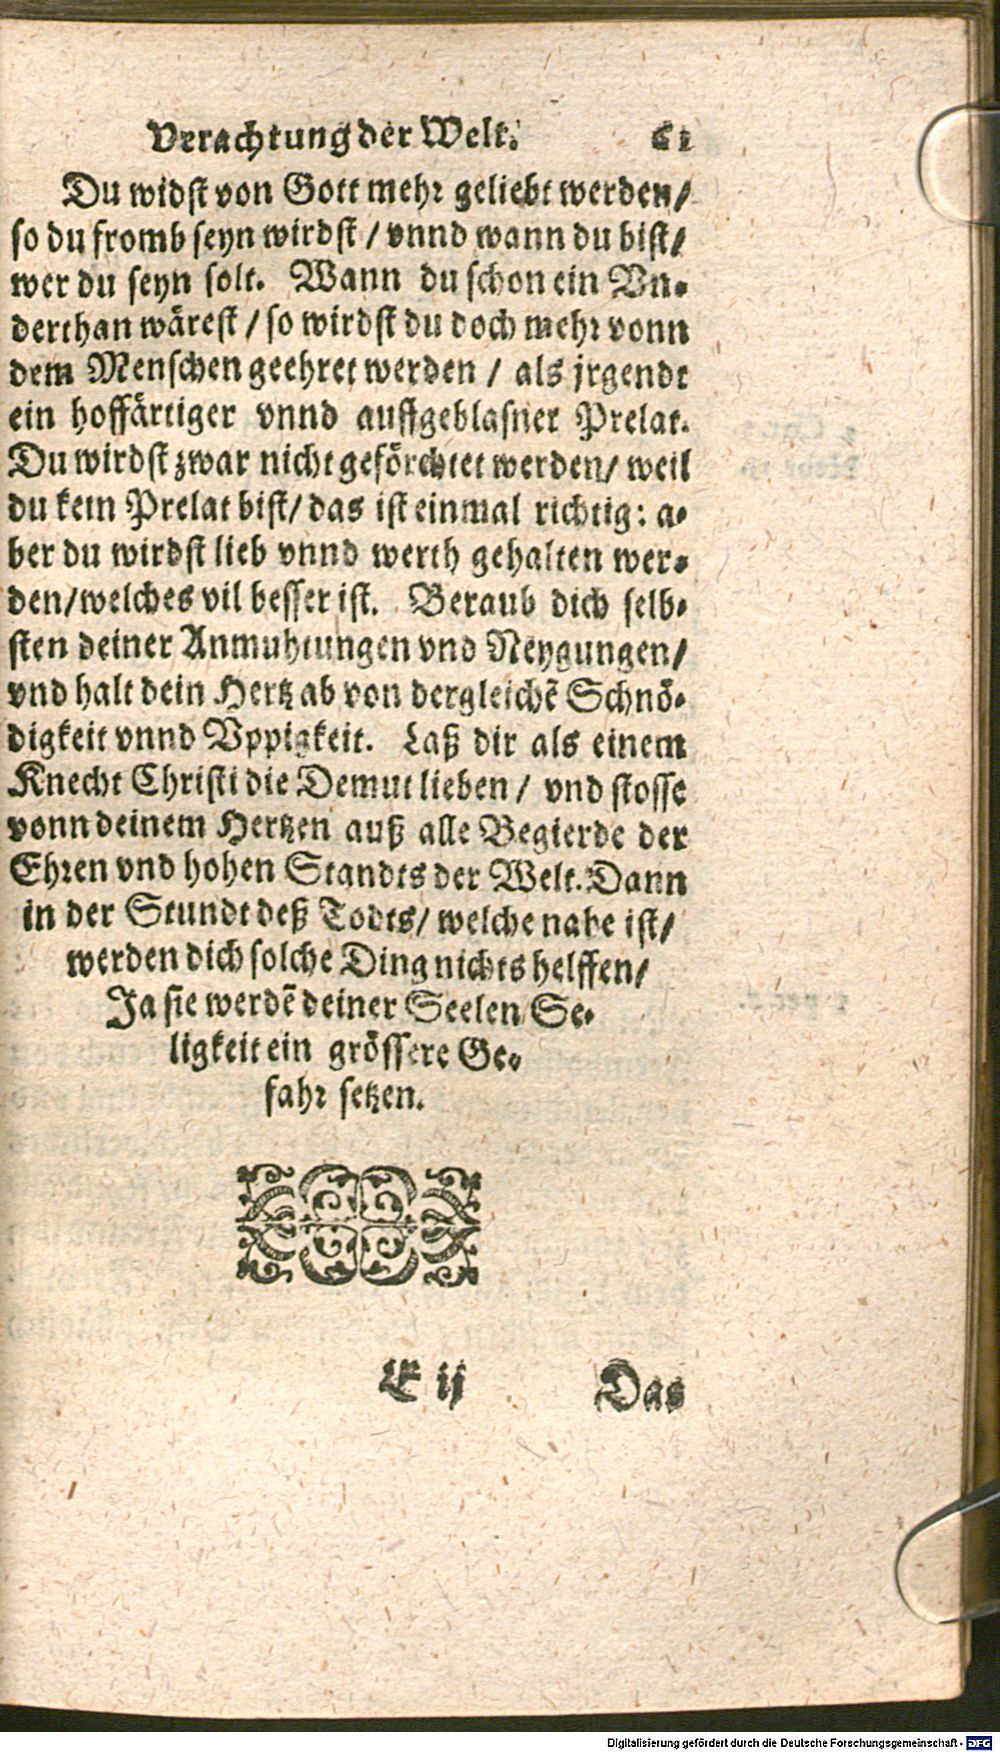 Verachtung der Welt. 61
Du widst von Gott mehr geliebt werden/
so du fromb seyn wirdst / vnnd wann du bist/
wer du seyn solt. Wann du schon ein Vn-
derthan wärest / so wirdst du doch mehr vonn
dem Menschen geehret werden / als jrgendt
ein hoffärtiger vnnd auffgeblasner Prelat.
Du wirdst zwar nicht geförchtet werden/ weil
du kein Prelat bist/ das ist einmal richtig: a-
ber du wirdst lieb vnnd werth gehalten wer-
den/welches vil besser ist. Beraub dich selb-
sten deiner Anmuhtungen vnd Neygungen/
vnd halt dein Hertz ab von dergleichẽ Schnö-
digkeit vnnd Vppigkeit. Laß dir als einem
Knecht Christi die Demut lieben / vnd stosse
vonn deinem Hertzen auß alle Begierde der
Ehren vnd hohen Standts der Welt. Dann
in der Stundt deß Todts/ welche nahe ist/
werden dich solche Ding nichts helffen/
Ja sie werdẽ deiner Seelen Se-
ligkeit ein grössere Ge-
fahr setzen.
E ij Das
Digitalisierung gefördert durch die Deutsche Forschungsgemeinschaft - DFG